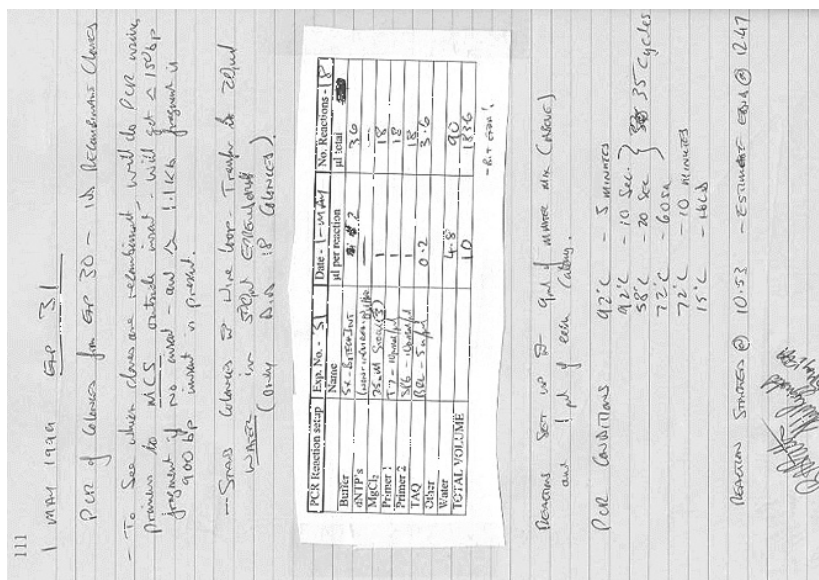 111
1 MAY 1999 Exp 31
PCR of Colonies from Exp 30 - ID Recombinant Clones
- To See which clones are recombinant, will do PCR using
primers to MCS outside insert - will get < 150bp
fragment if no insert - and > 1.1Kb fragment if
900 bp insert is present.
Colonies Wire loop - Transfer to
WATER in
(only 18 Colonies)
PCR Reaction setup Exp. No. - 31 Date - 1-MAY No. Reactions - 18
Name µl per reaction µl total
Buffer 5x 2 36
dNTP's —
MgCl₂ 25mM 1 18
Primer 1 T7 1 18
Primer 2 SP6 1 18
TAQ 0.2 3.6
Other
Water 4.8 90
TOTAL VOLUME 10 183.6
Reactions Set up 9µl of Master mix (Above)
and 1 µl of each Colony.
PCR Conditions 92°C - 5 minutes
92°C - 10 Sec.
58°C - 20 Sec } 35 Cycles
72°C - 60 Sec
72°C - 10 minutes
15°C - Hold
Reaction Started @ 10:53 - Estimate END @ 12:47